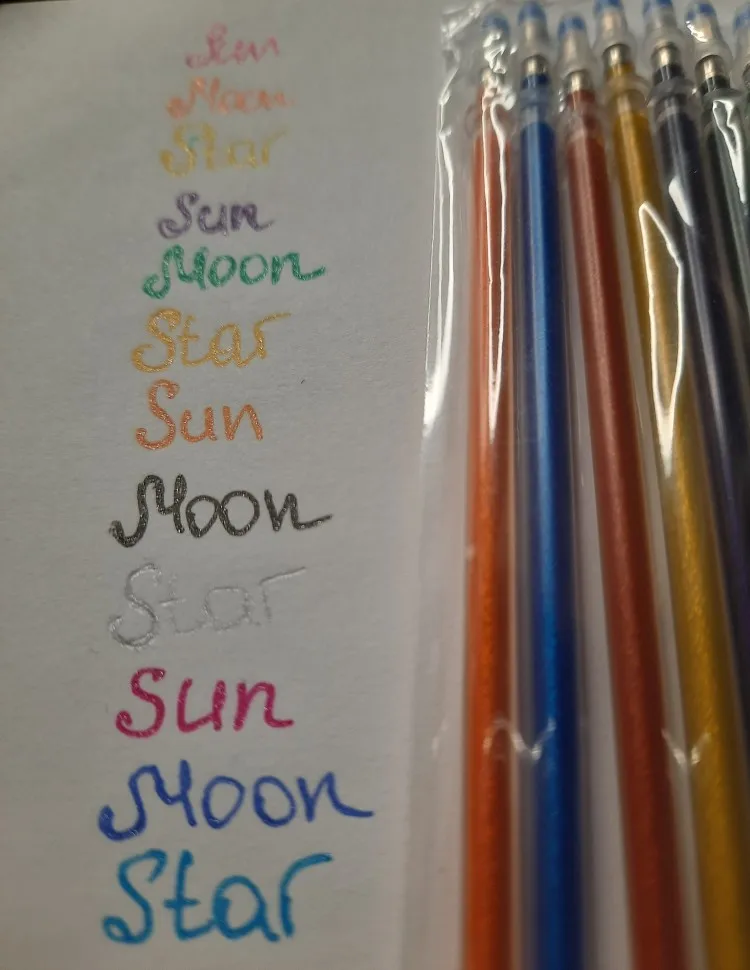 Sun
Moon
Star
Sun
Moon
Star
Sun
Moon
Star
Sun
Moon
Star